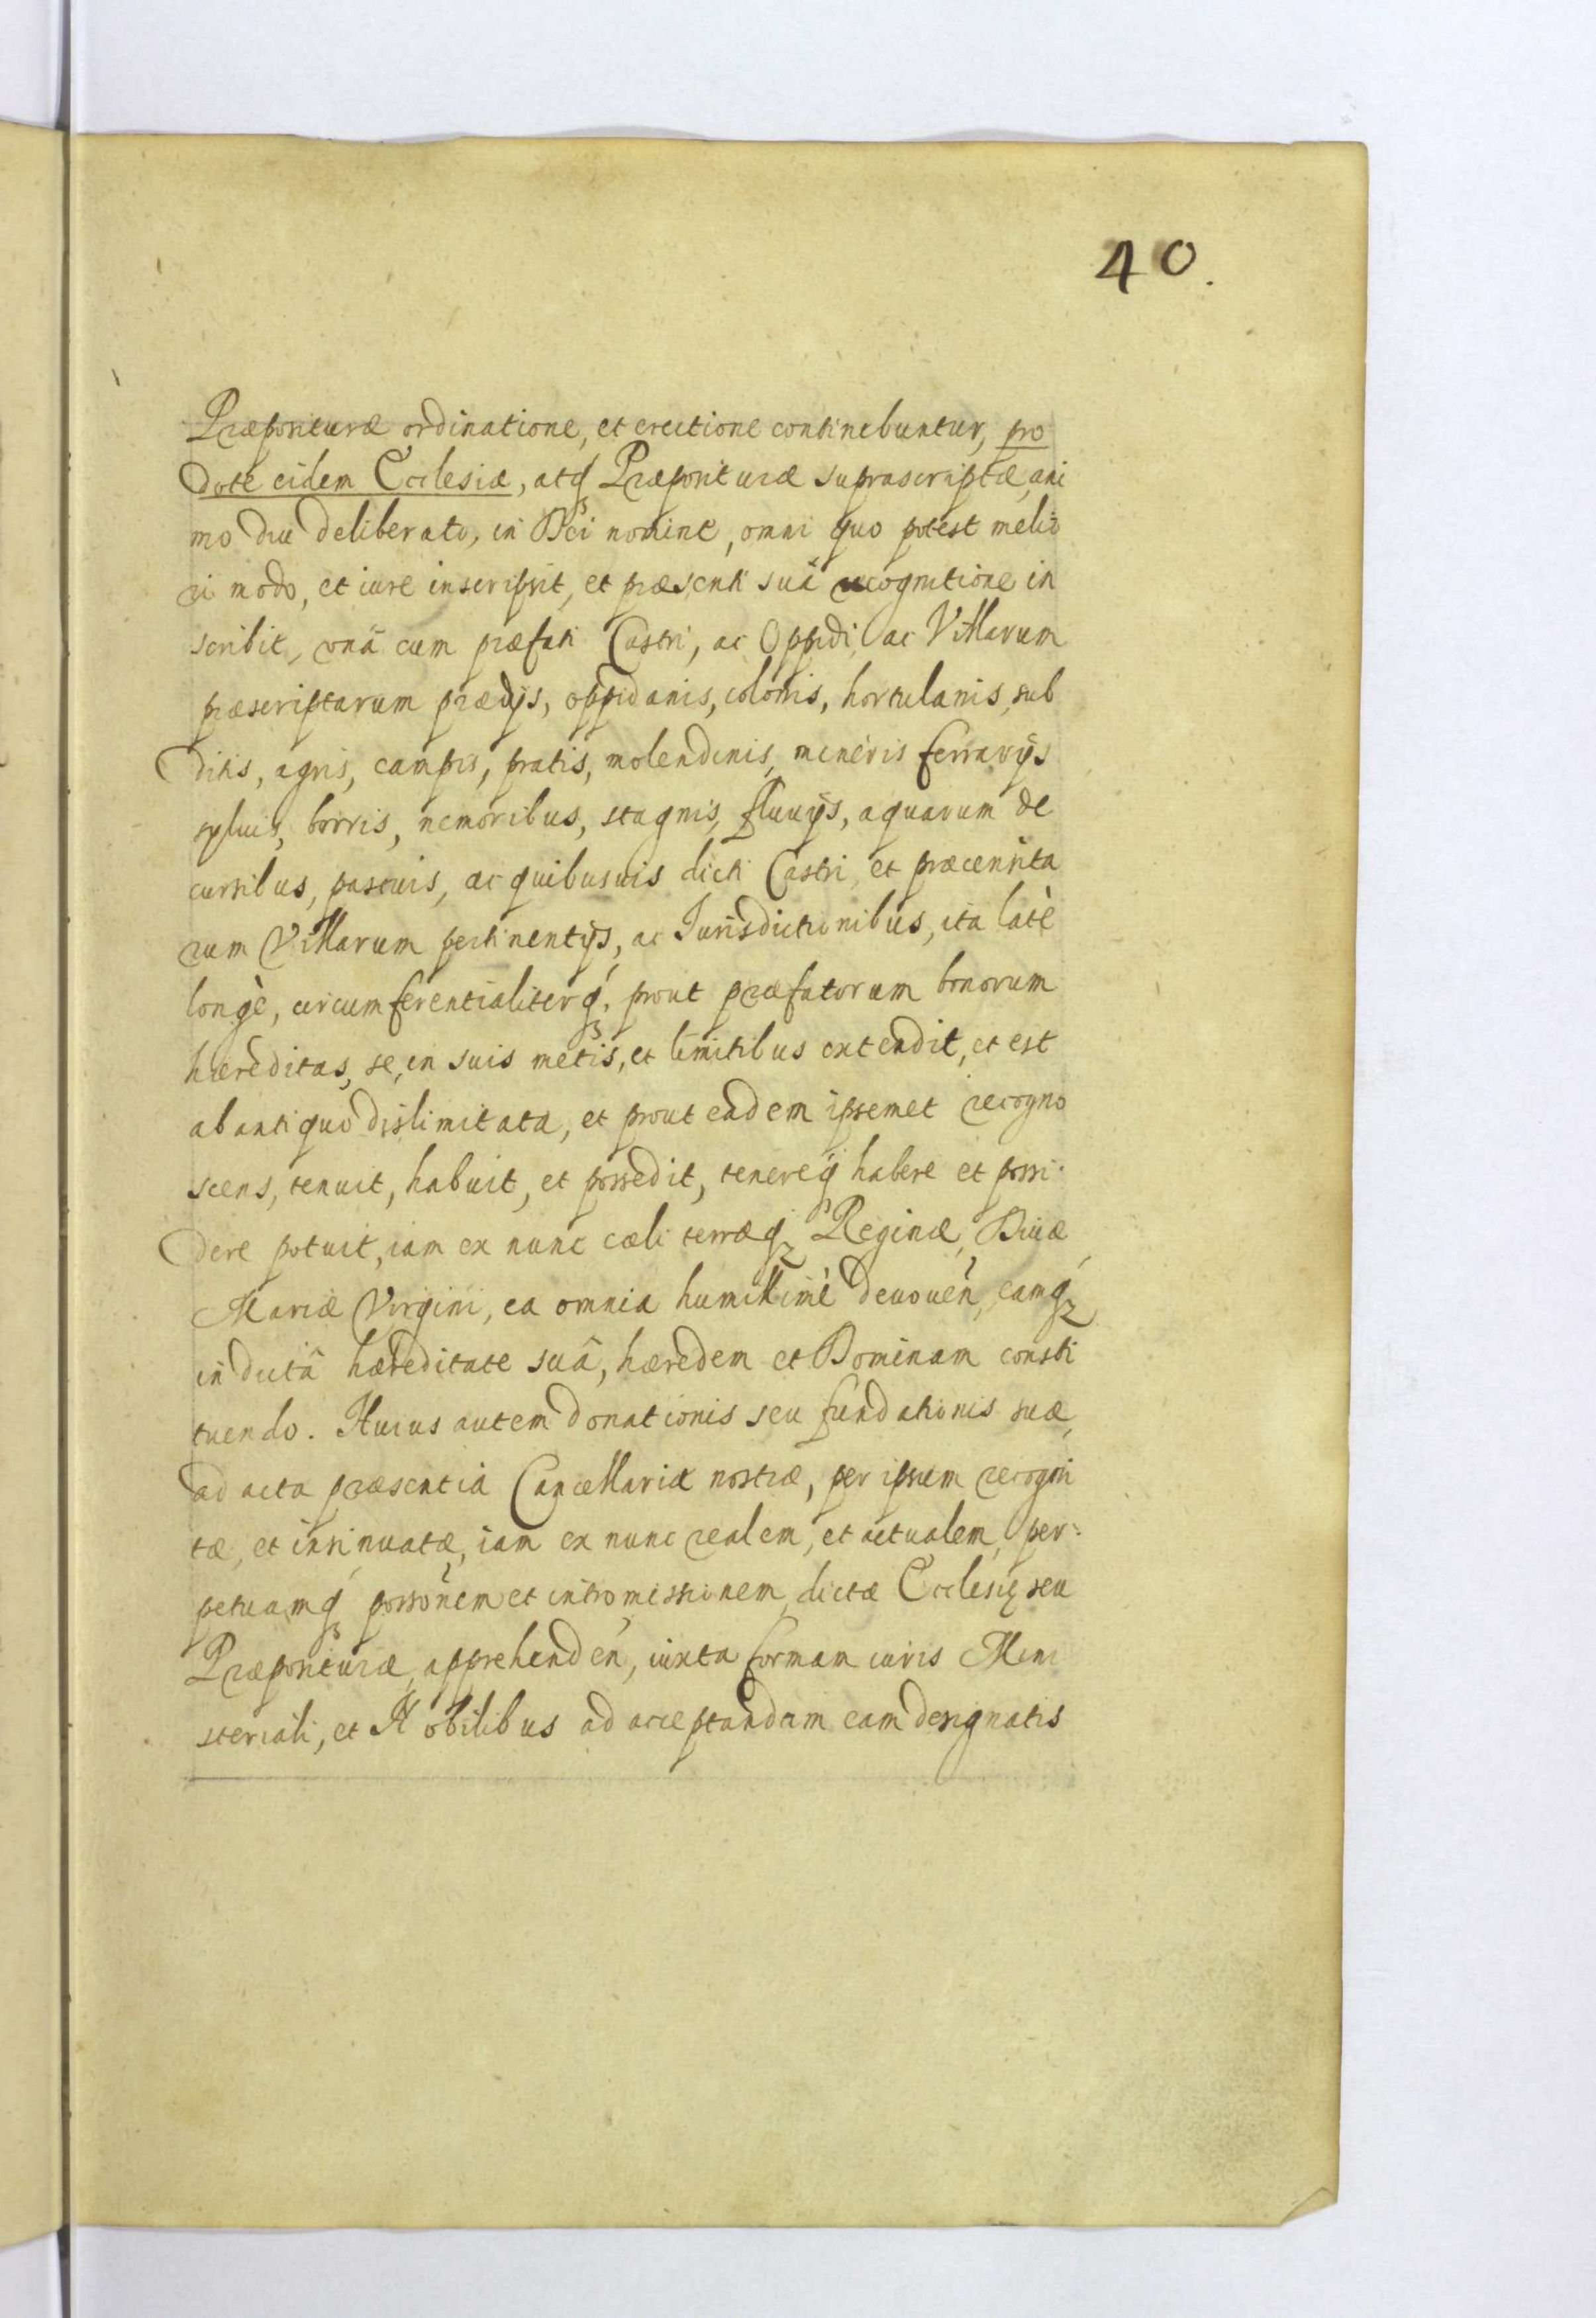 40.
Præposituræ ordinatione, et erectione continebuntur, pro
dote eidem Ecclesiæ, atq₃ Præposituræ suprascriptæ, ani
mo diu deliberato, in Dei nomine, omni quo potest melio
ri modo, et iure inscripsit, et præsenti suâ recognitione in
scribit, vnâ cum præfati Castri, ac Oppidi, ac Villarum
præscriptarum prædijs, oppidanis, colonis, hortulanis, sub
ditis, agris, campis, pratis, molendinis, mineris ferrarijs
syluis, borris, nemoribus, stagnis, fluuijs, aquarum de
cursibus, pascuis, ac quibusuis dicti Castri, et præcensita
rum Villarum pertinentijs, ac Jurisdictionibus, ita latè
longè, circumferentialiterq́₃ prout præfatorum bonorum
hæreditas, se, in suis metis, et limitibus extendit, et est
ab antiquo dislimitata, et prout eadem ipsemet recogno
scens, tenuit, habuit, et possedit, tenereq́ habere et possi
dere potuit, iam ex nunc cæli terræq₃ Reginæ, Diuæ
Mariæ Virgini, ea omnia humillimè deuouen̄, eamq́₃
in dictâ hæreditate suâ, hæredem et Dominam consti
tuendo. Huius autem donationis seu fundationis suæ,
ad acta præsentia Cancellariæ nostræ, per ipsum recogni
tæ, et insinuatæ, iam ex nunc realem, et actualem, per:
petuamq́₃ possōnem et intromissionem, dictæ Ecclesię seu
Præposituræ, apprehenden̄, iuxta formam iuris Mini
steriali, et Nobilibus ad acceptandam eam designatis